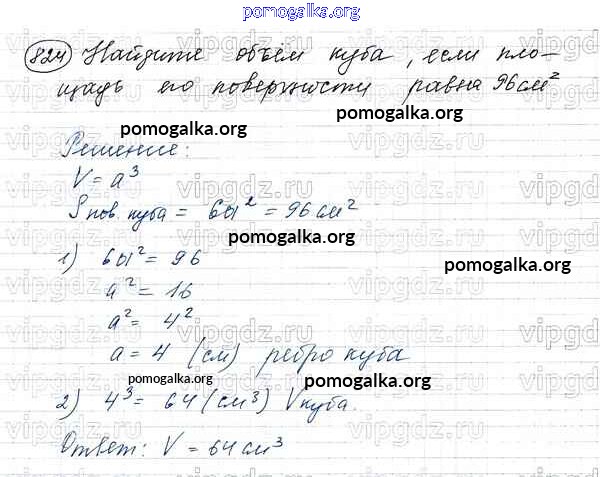 pomogalka.org
824 Найдите объём куба, если пло-
щадь его поверхности равна 96 см²
pomogalka.org
pomogalka.org
Решение:
V = a³
S пов. куба = 6a² = 96 см²
pomogalka.org
1) 6a² = 96
pomogalka.org
a² = 16
a² = 4²
a = 4 (см) ребро куба
pomogalka.org
pomogalka.org
2) 4³ = 64 (см³) V куба.
Ответ: V = 64 см³
vipgdz.ru